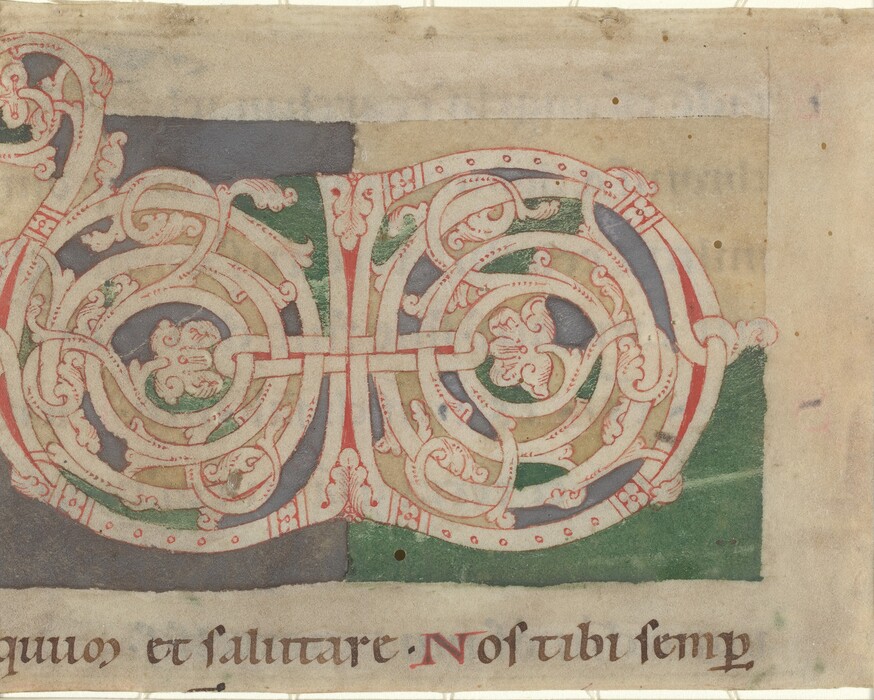 quum et salutare · Nos tibi semꝑ